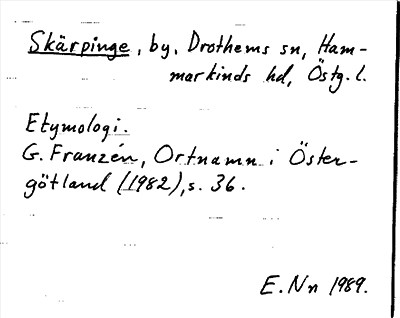 Skärpinge, by, Drothems sn, Ham-
markinds hd, Östg. l.
Etymologi.
G. Franzén, Ortnamn i Öster-
götland (1982), s. 36.
E. Nn 1989.